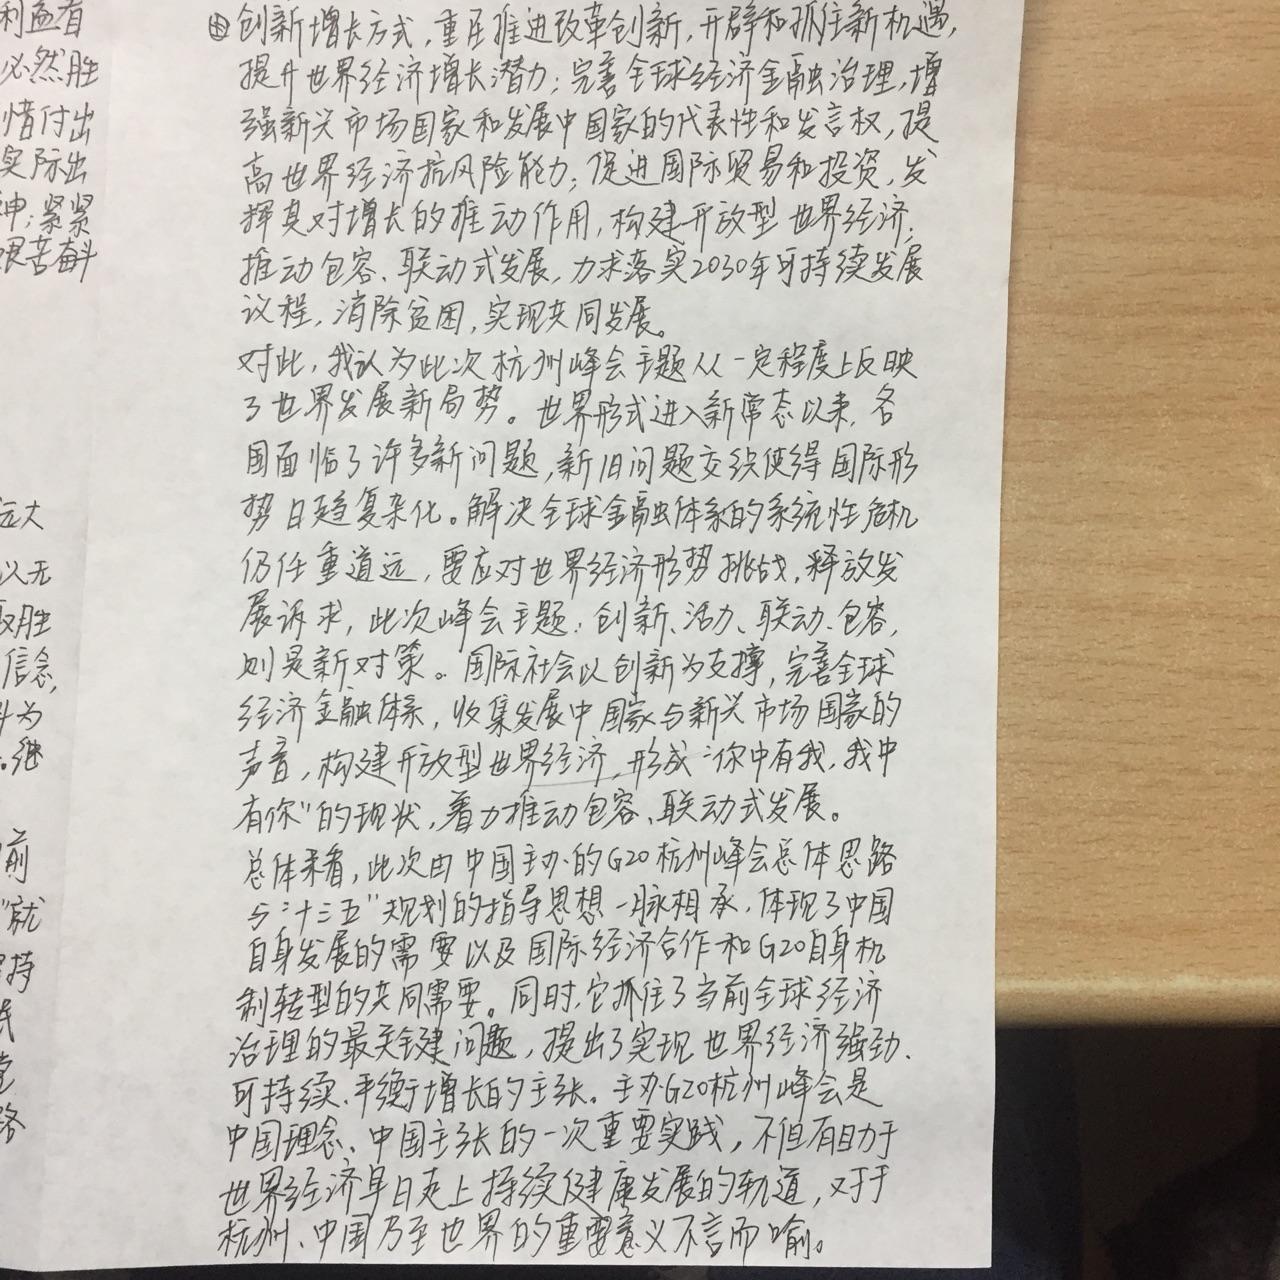 利益看
必然胜
惜付出
实际出
神;紧紧
艰苦奋斗
远大
以无
取胜
信念,
斗为
。继
前
"就
坚持
民
党
路
由创新增长方式,重在推进改革创新,开辟和抓住新机遇,
提升世界经济增长潜力;完善全球经济金融治理,增
强新兴市场国家和发展中国家的代表性和发言权,提
高世界经济抗风险能力;促进国际贸易和投资,发
挥其对增长的推动作用,构建开放型世界经济;
推动包容、联动式发展,力求落实2030年可持续发展
议程,消除贫困,实现共同发展。
对此,我认为此次杭州峰会主题从一定程度上反映
了世界发展新局势。世界形式进入新常态以来,各
国面临了许多新问题,新旧问题交织使得国际形
势日趋复杂化。解决全球金融体系的系统性危机
仍任重道远,要应对世界经济形势挑战,释放发
展诉求,此次峰会主题:创新、活力、联动、包容,
则是新对策。国际社会以创新为支撑,完善全球
经济金融体系,收集发展中国家与新兴市场国家的
声音,构建开放型世界经济,形成"你中有我,我中
有你"的现状,着力推动包容、联动式发展。
总体来看,此次由中国主办的G20杭州峰会总体思路
与"十三五"规划的指导思想一脉相承,体现了中国
自身发展的需要以及国际经济合作和G20自身机
制转型的共同需要。同时,它抓住了当前全球经济
治理的最关键问题,提出了实现世界经济强劲、
可持续、平衡增长的主张。主办G20杭州峰会是
中国理念、中国主张的一次重要实践,不但有助于
世界经济早日走上持续健康发展的轨道,对于
杭州、中国乃至世界的重要意义不言而喻。